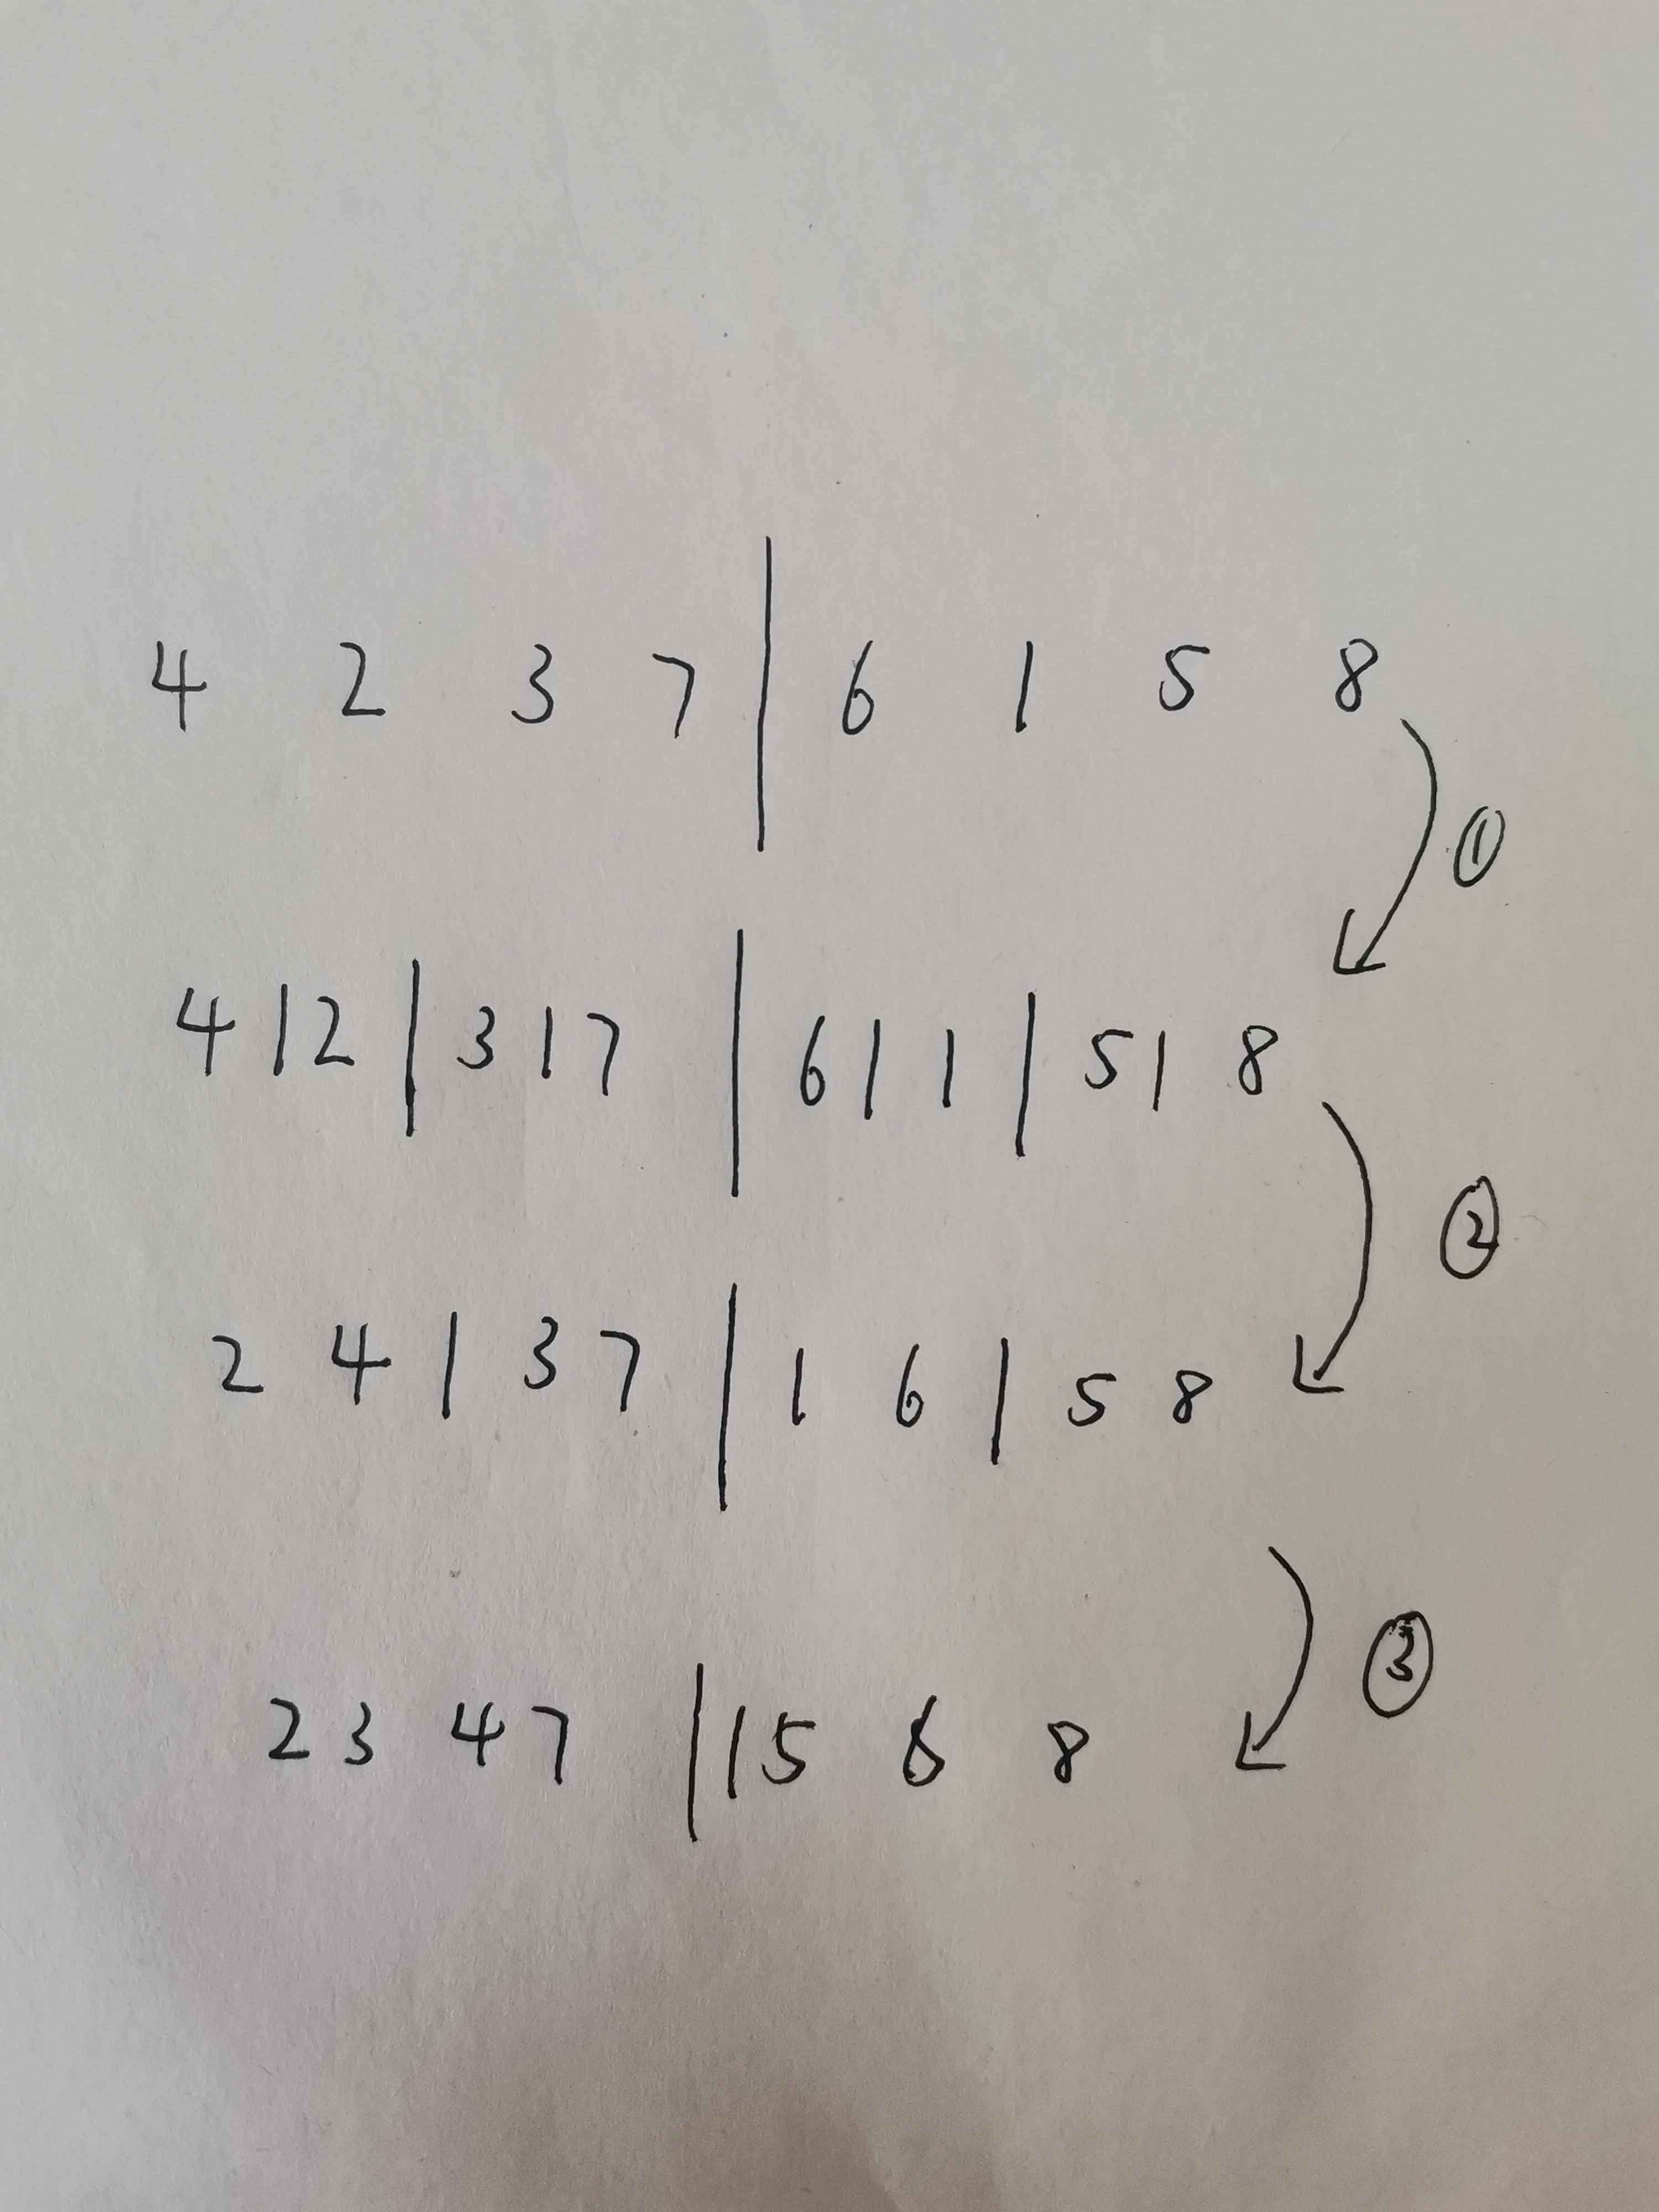 4 2 3 7 | 6 1 5 8
①
4 | 2 | 3 | 7 | 6 | 1 | 5 | 8
②
2 4 | 3 7 | 1 6 | 5 8
③
2 3 4 7 | 1 5 6 8